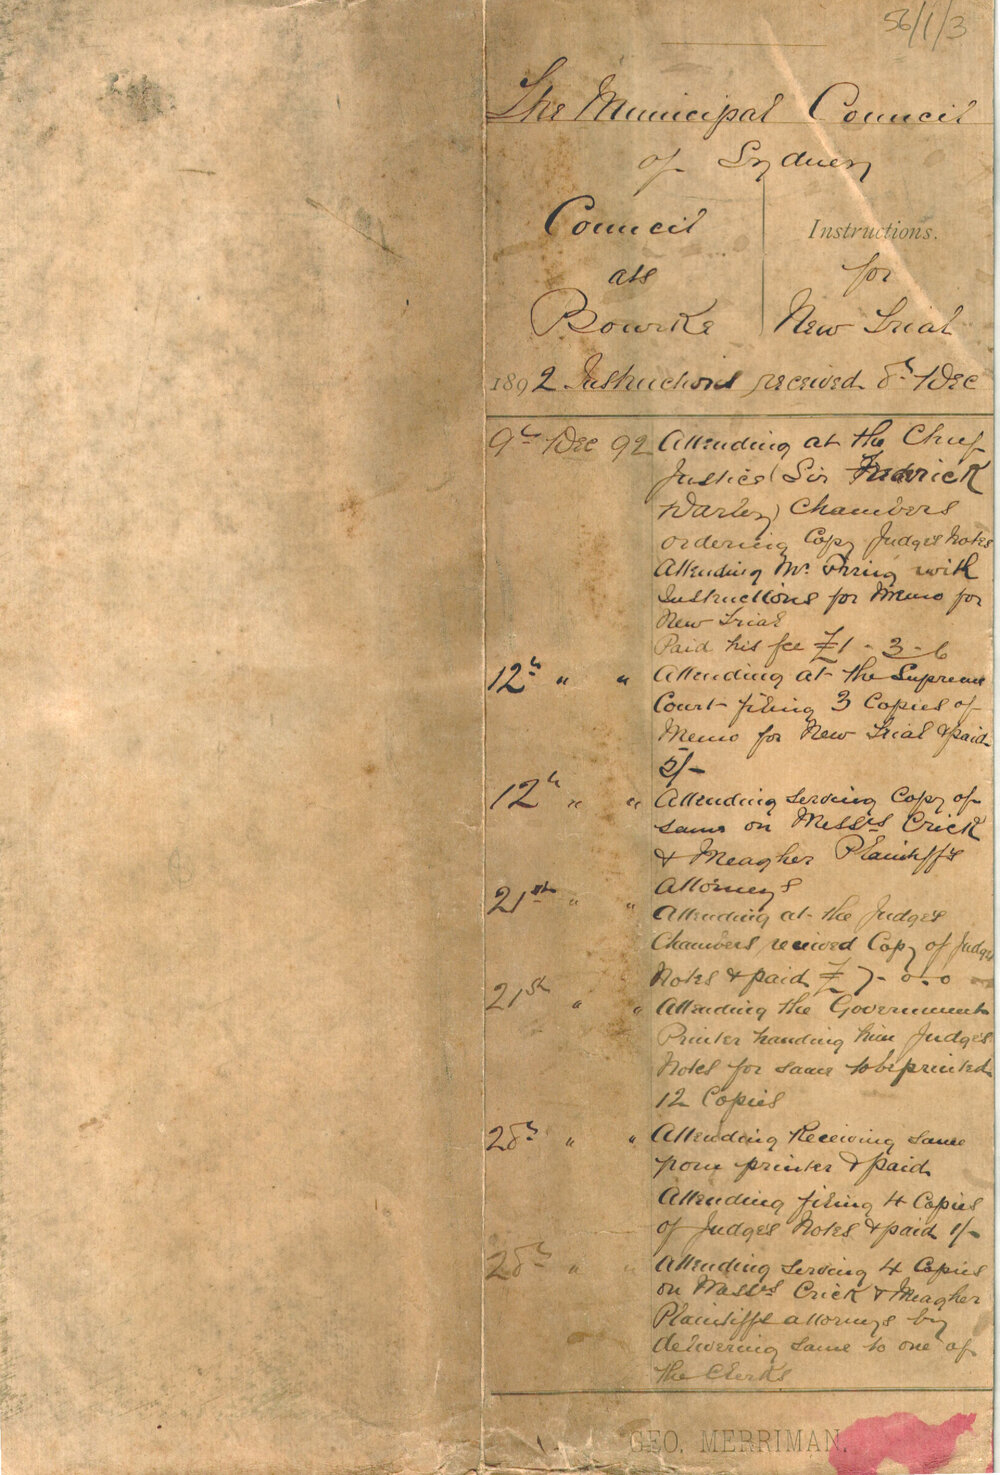 56/1/3
The Municipal Council
of Sydney
Council
ats
Bourke
Instructions.
for
New Trial
1892 Instructions received 8th Dec
9th Dec 92 Attending at the Chief
Justice (Sir Frederick
Darley) Chambers
ordering Copy Judges Notes
Attending Mr. Pring with
Instructions for Memo for
New Trial
Paid his fee £1-3-6
12th " " Attending at the Supreme
Court filing 3 Copies of
Memo for New Trial & paid
5/-
12th " " Attending serving Copy of
same on Messrs Crick
& Meagher Plaintiff's
Attorneys
21st " " Attending at the Judges
Chambers received Copy of Judges
Notes & paid £7-0.0
21st " " Attending the Government
Printer handing him Judges
Notes for same to be printed
12 Copies
28th " " Attending Receiving same
from printer & paid
Attending filing 4 Copies
of Judges Notes & paid 1/-
28th " " Attending serving 4 Copies
on Messrs Crick & Meagher
Plaintiffs attorneys by
delivering same to one of
the Clerks
GEO. MERRIMAN.